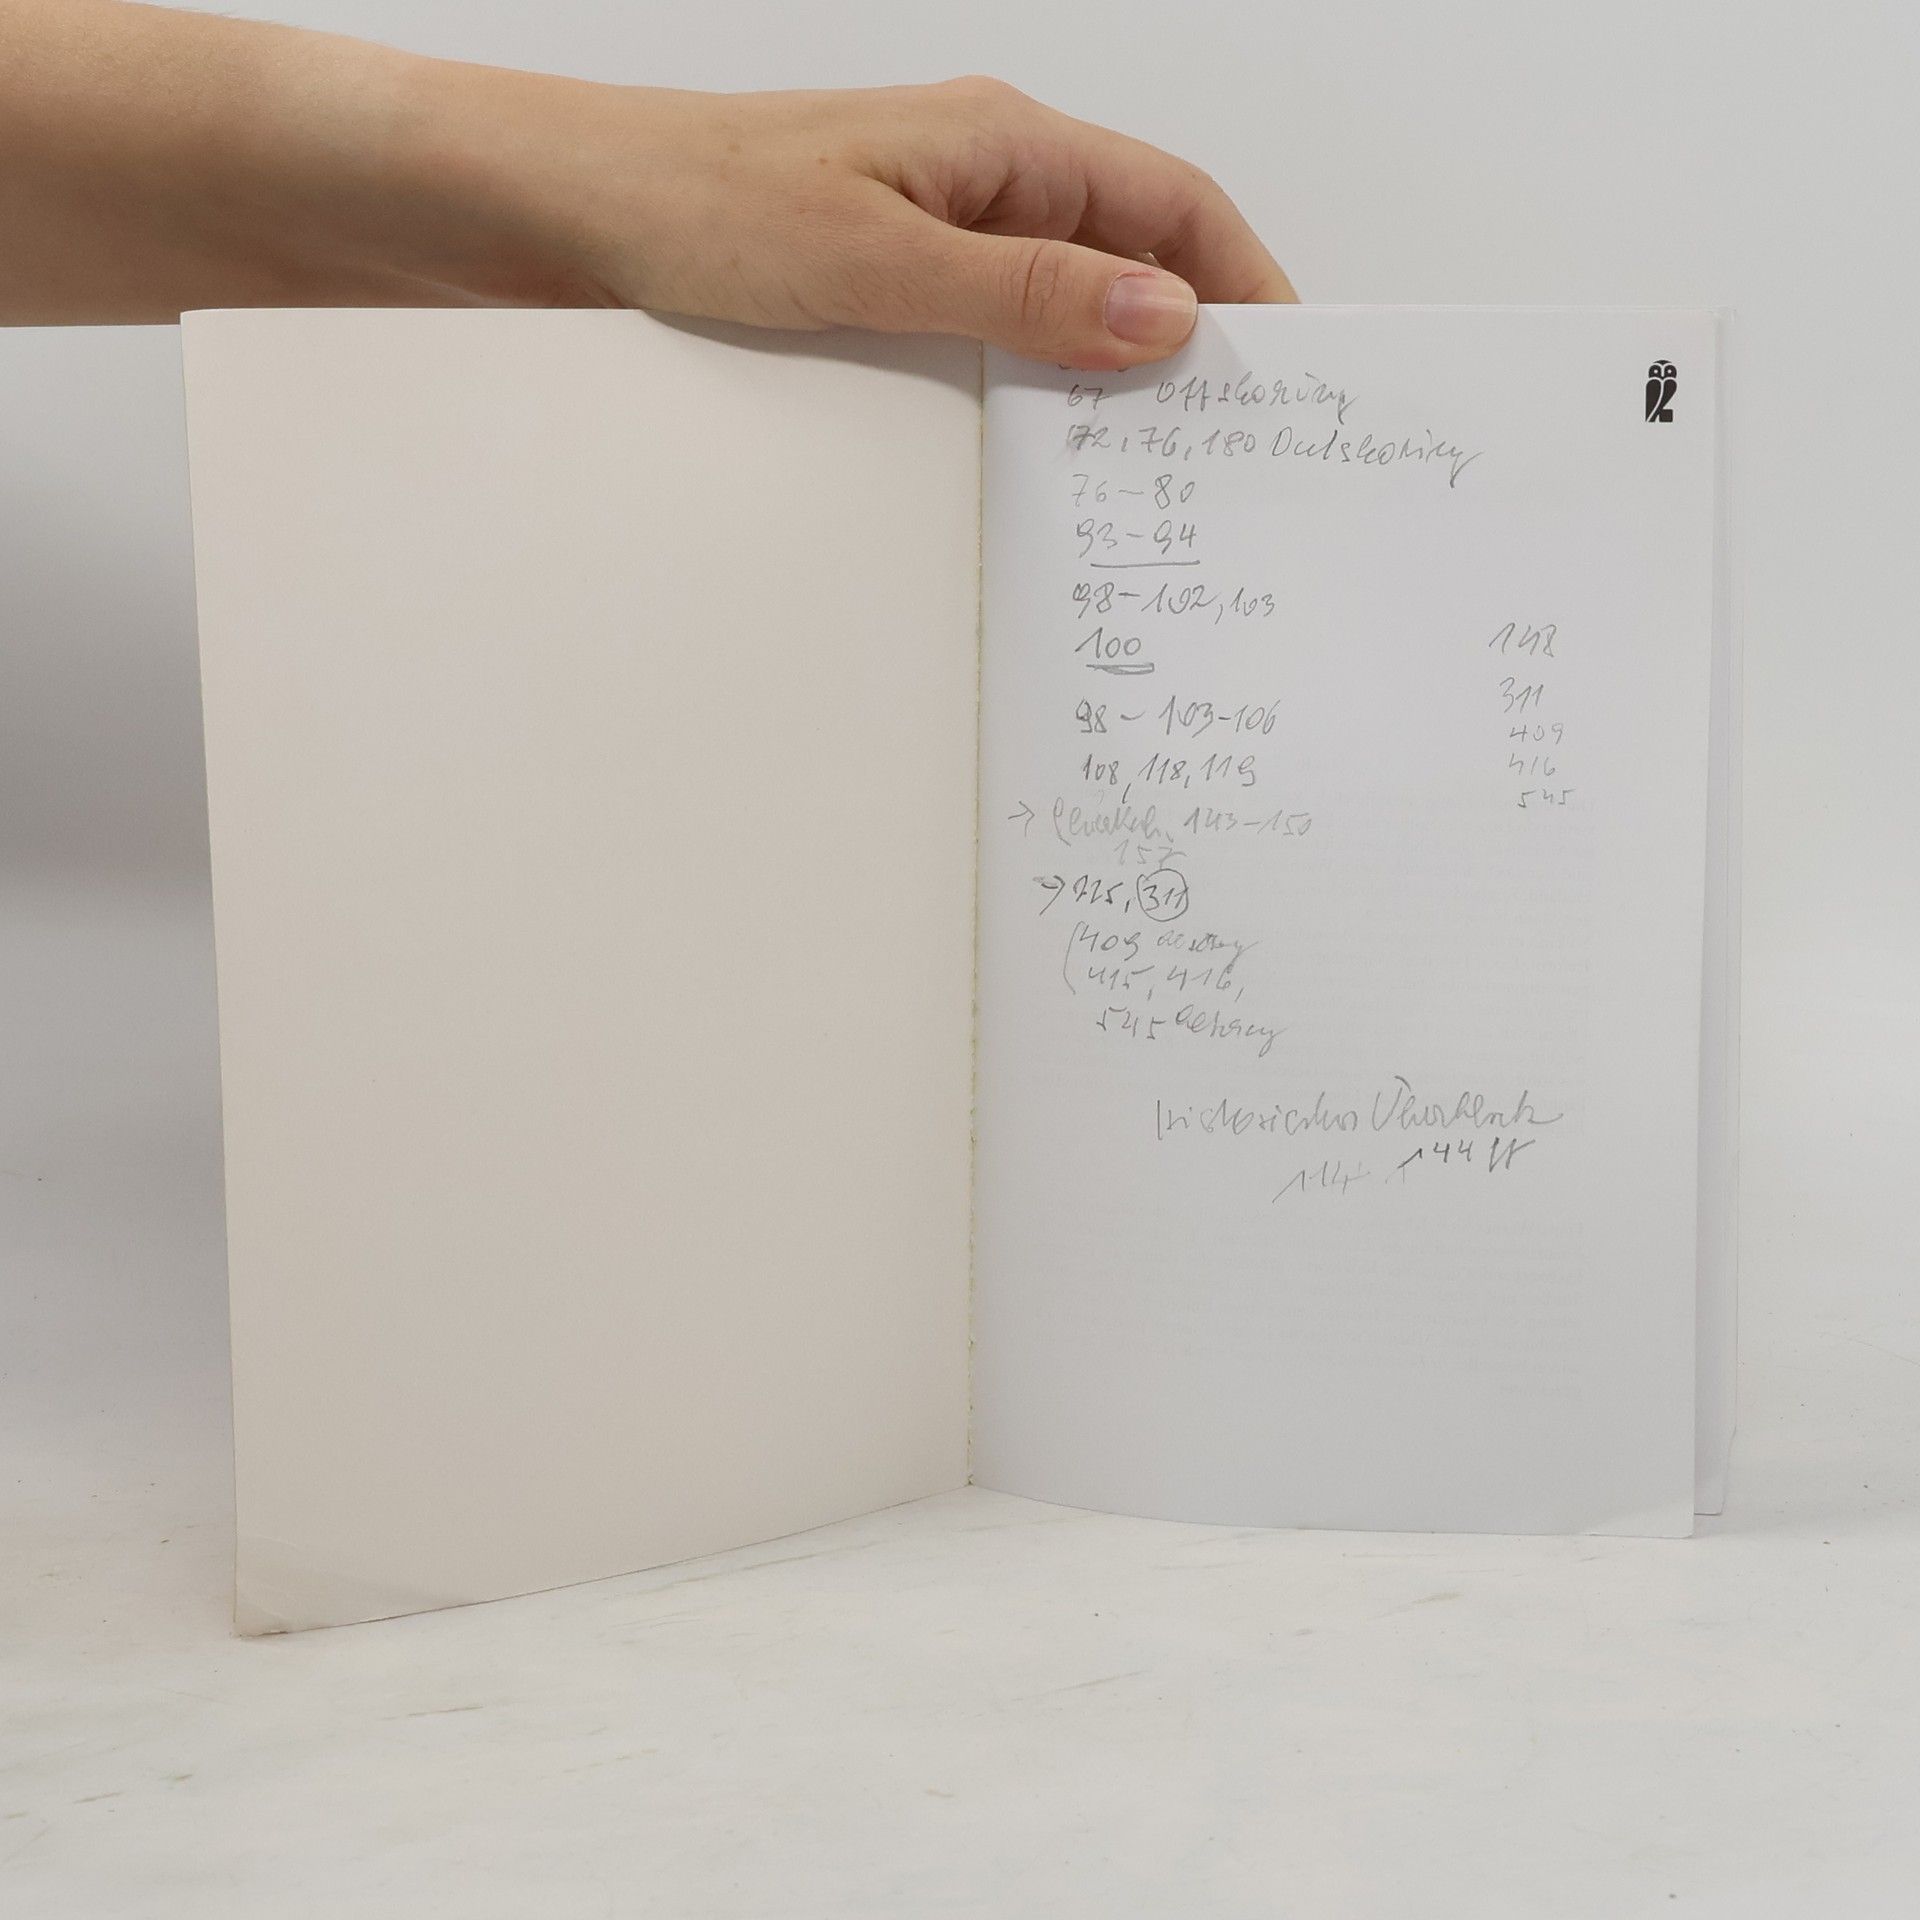 67 Offshoring
72, 76, 180 Outshoring
76 – 80
93 – 94
98 – 102, 103
100
98 – 103-106
108, 118, 119
→ 143-150
157
→ 225, 311
(409
415, 416,
545
148
311
409
416
545
historischer Überblick
114 144 ff